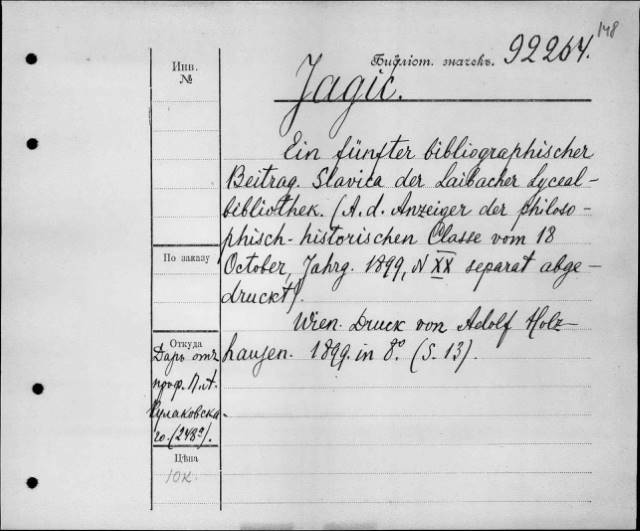 148
Библіот. значекъ. 92264.
Инв.
№
Jagić.
Ein fünfter bibliographischer
Beitrag. Slavica der Laibacher Lyceal-
bibliothek. (A. d. Anzeiger der philoso-
phisch-historischen Classe vom 18
October, Jahrg. 1899, N XX separat abge-
druckt).
Wien. Druck von Adolf Holz-
hausen. 1899. in 8º. (S. 13).
По заказу
Откуда
Даръ отъ
проф. П. А.
Кулаковска-
го. (248º).
Цѣна
10 к.